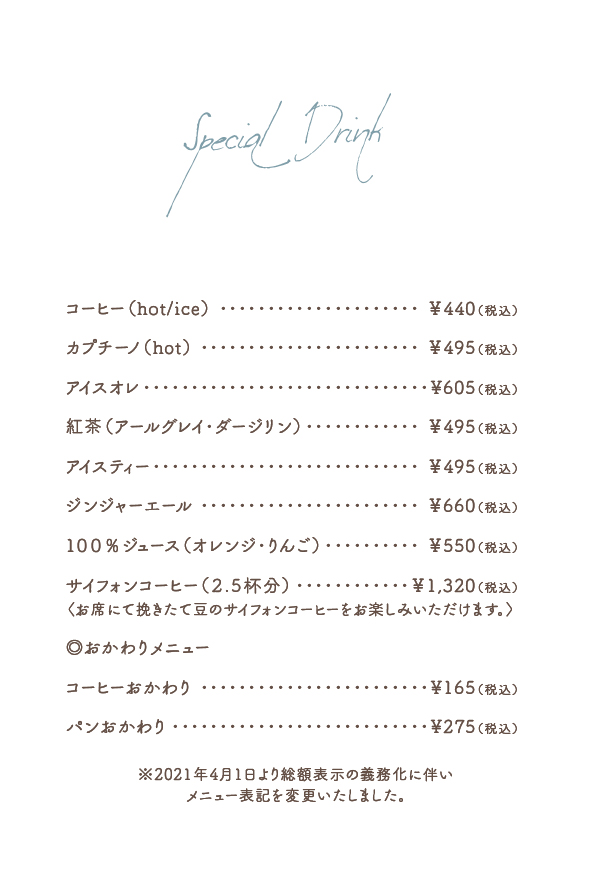 Special Drink
コーヒー（hot/ice） ····················· ¥440（税込）
カプチーノ（hot） ······················· ¥495（税込）
アイスオレ······························¥605（税込）
紅茶（アールグレイ・ダージリン）············ ¥495（税込）
アイスティー···························· ¥495（税込）
ジンジャーエール ······················· ¥660（税込）
100％ジュース（オレンジ・りんご）·········· ¥550（税込）
サイフォンコーヒー（2.5杯分） ············¥1,320（税込）
〈お席にて挽きたて豆のサイフォンコーヒーをお楽しみいただけます。〉
◎おかわりメニュー
コーヒーおかわり ························¥165（税込）
パンおかわり ···························¥275（税込）
※2021年4月1日より総額表示の義務化に伴い
メニュー表記を変更いたしました。